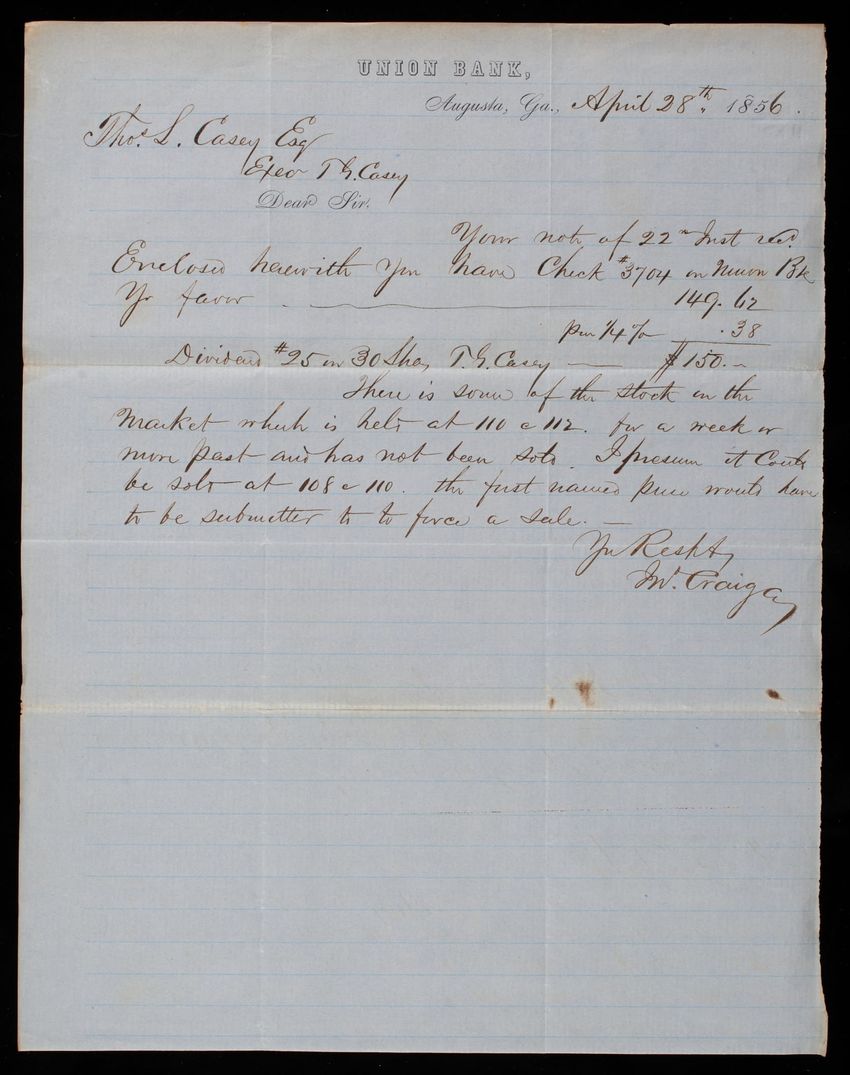 UNION BANK,
Augusta, Ga., April 28th. 1856.
Thos. L. Casey Esq
Exeor T G. Casey
Dear Sir.
Your note of 22nd Inst recd.
Enclosed herewith you have Check #3704 on Union Bk
Yr favor 149.62
pm 1/4 % .38
Dividend #25 on 30 Shas T. G. Casey — $150.–
There is some of the stock in the
Market which is held at 110 @ 112. for a week or
more past and has not been sold. I presume it could
be sold at 108 @ 110. the first named price would have
to be submitted to to force a sale. —
Yr Respty
Jno. Craig